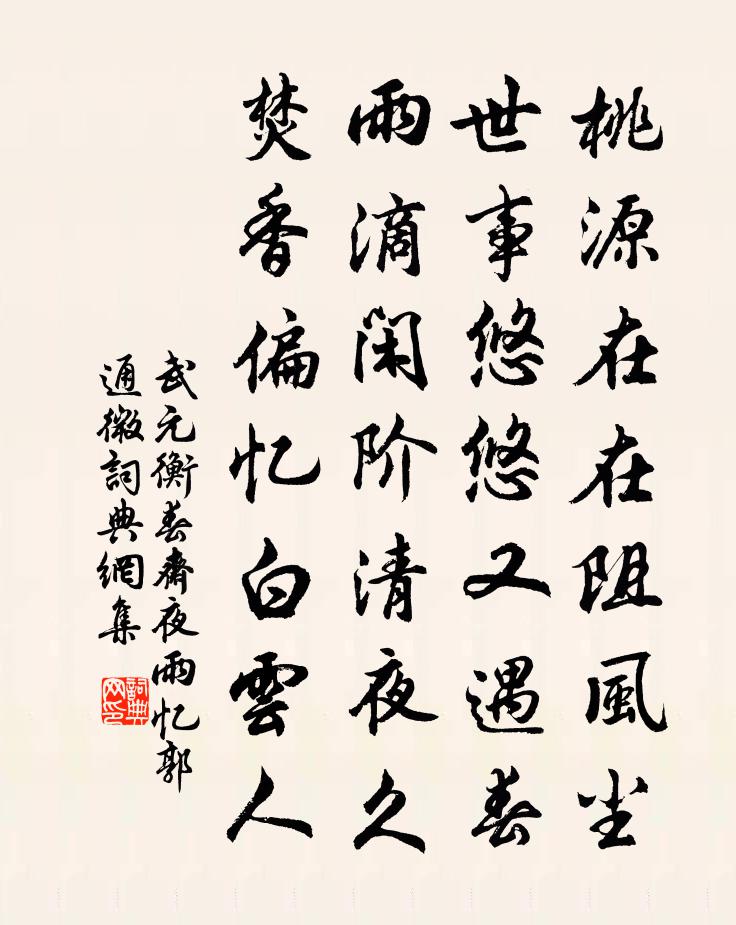 桃源在在阻風尘
世事悠悠又遇春
雨滴闲阶清夜久
焚香偏忆白雲人
武元衡春齋夜雨忆郭
通微詞典網集
詞典网印